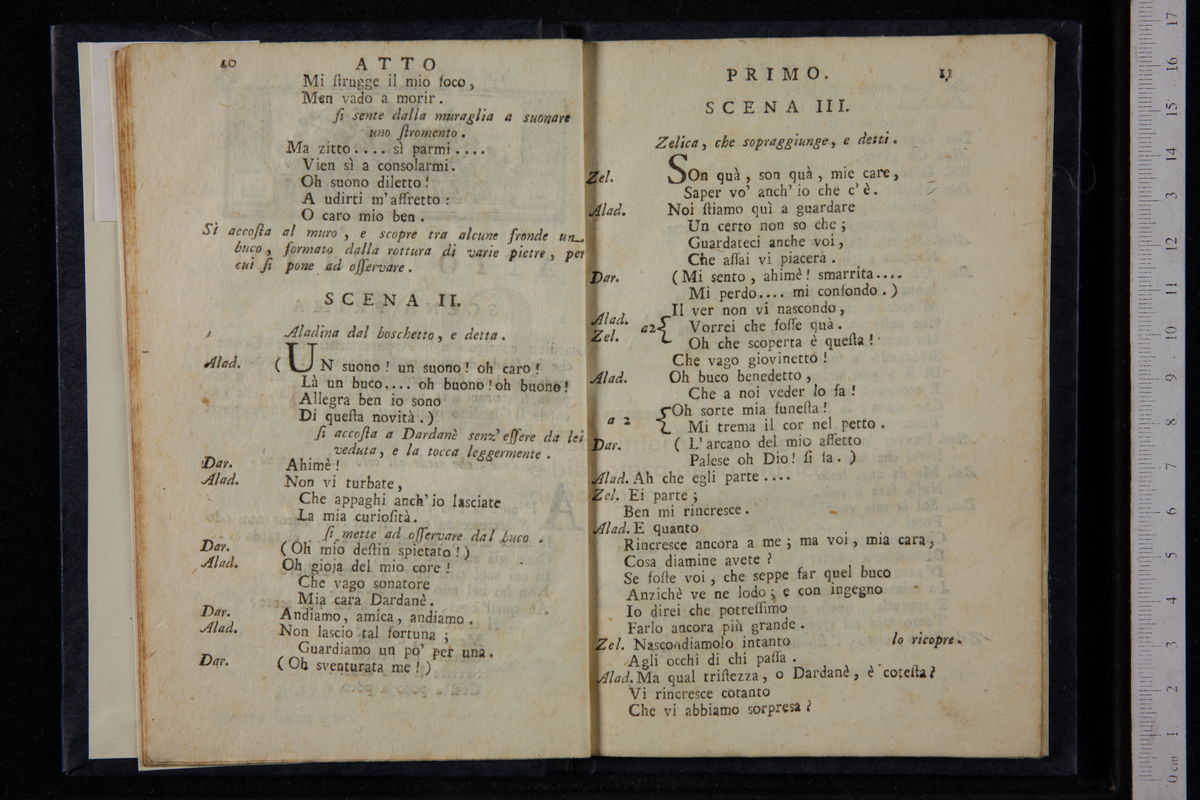 10 ATTO
Mi ſtrugge il mio foco,
Men vado a morir.
ſi sente dalla muraglia a suonare
uno ſtromento.
Ma zitto.... sì parmi....
Vien sì a consolarmi.
Oh suono diletto!
A udirti m'affretto:
O caro mio ben.
Si accoſta al muro, e scopre tra alcune fronde un
buco, formato dalla rottura di varie pietre, per
cui ſi pone ad oſſervare.
SCENA II.
Aladina dal boschetto, e detta.
Alad. (UN suono! un suono! oh caro!
Là un buco.... oh buono! oh buono!
Allegra ben io sono
Di queſta novità.)
ſi accoſta a Dardanè senz'eſſere da lei
veduta, e la tocca leggermente.
Dar. Ahimè!
Alad. Non vi turbate,
Che appaghi anch'io lasciate
La mia curioſità.
ſi mette ad oſſervare dal buco.
Dar. (Oh mio deſtin spietato!)
Alad. Oh gioja del mio core!
Che vago sonatore
Mia cara Dardanè.
Dar. Andiamo, amica, andiamo.
Alad. Non lascio tal fortuna;
Guardiamo un po' per una.
Dar. (Oh sventurata me!)
PRIMO. 11
SCENA III.
Zelica, che sopraggiunge, e detti.
Zel. SOn quà, son quà, mie care,
Saper vo' anch'io che c'è.
Alad. Noi ſtiamo quì a guardare
Un certo non so che;
Guardateci anche voi,
Che aſſai vi piacerà.
Dar. (Mi sento, ahimè! smarrita....
Mi perdo.... mi confondo.)
Il ver non vi nascondo,
Alad. Zel. a2 { Vorrei che foſſe quà.
Oh che scoperta è queſta!
Che vago giovinetto!
Alad. Oh buco benedetto,
Che a noi veder lo fa!
a 2 { Oh sorte mia funeſta!
Mi trema il cor nel petto.
Dar. (L'arcano del mio affetto
Palese oh Dio! ſi fa.)
Alad. Ah che egli parte....
Zel. Ei parte;
Ben mi rincresce.
Alad. E quanto
Rincresce ancora a me; ma voi, mia cara,
Cosa diamine avete?
Se foſte voi, che seppe far quel buco
Anzichè ve ne lodo; e con ingegno
Io direi che potreſſimo
Farlo ancora più grande.
Zel. Nascondiamolo intanto lo ricopre.
Agli occhi di chi paſſa.
Alad. Ma qual triſtezza, o Dardanè, è coteſta?
Vi rincresce cotanto
Che vi abbiamo sorpresa?